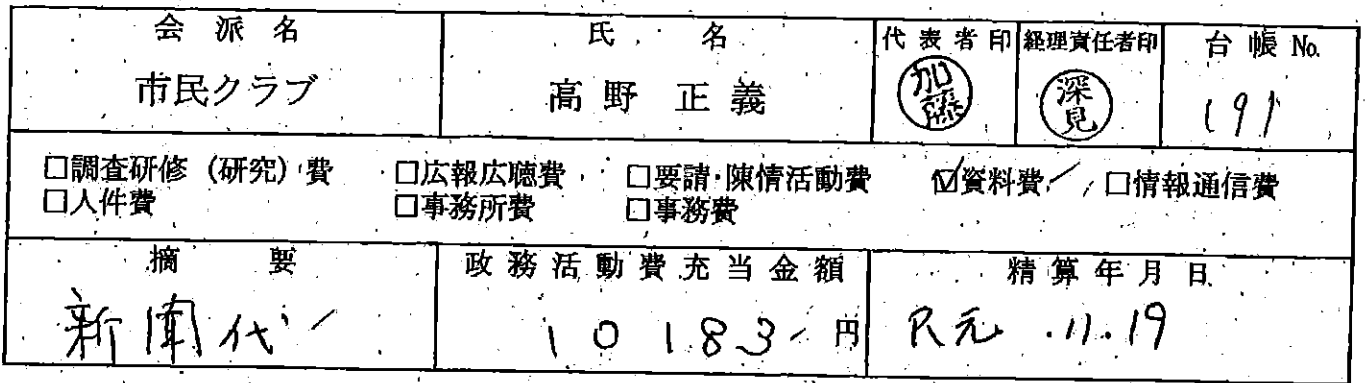 会派名 氏名 代表者印 経理責任者印 台帳No.
市民クラブ 高野 正義 加藤 深見 191
□調査研修(研究)費 □広報広聴費 □要請・陳情活動費 ☑資料費 □情報通信費
□人件費 □事務所費 □事務費
摘要 政務活動費充当金額 精算年月日
新聞代 10183円 R元.11.19